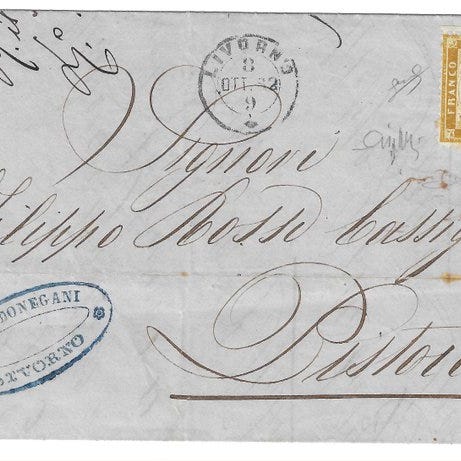 LIVORNO
8
OTT 62
9
FRANCO
Signori
Filippo Rossi Cassig
Pistoi
DONEGANI
LIVORNO